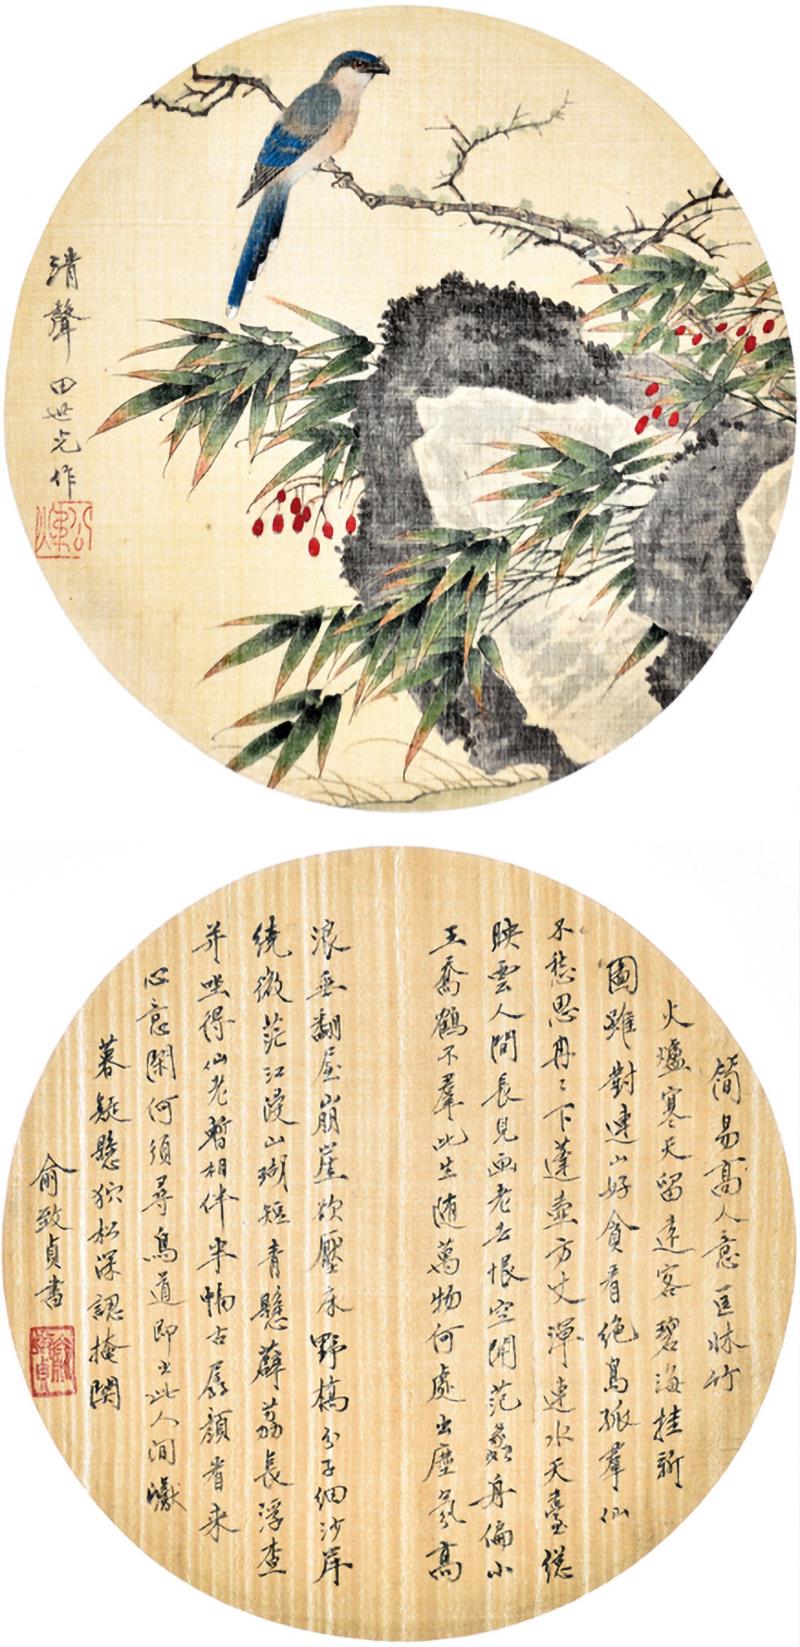 清聲
田世光作
公煒
簡易高人意匡牀竹
火爐寒天留遠客碧海挂新
圖雖對連山好貪看絕島孤羣仙
不愁思冉〻下蓬壺方丈渾連水天臺總
映雲人間長見畫老去恨空聞范蠡舟偏小
王喬鶴不羣此生隨萬物何處出塵氛高
浪垂翻屋崩崖欲壓床野橋分子細沙岸
繞微茫江浸山瑚短青懸薜荔長浮查
并坐得仙老暫相伴半幅古孱顏看來
心意閑何須尋鳥道即出此人間巘
暮疑懸狖松深認掩関
俞致貞書
俞致貞